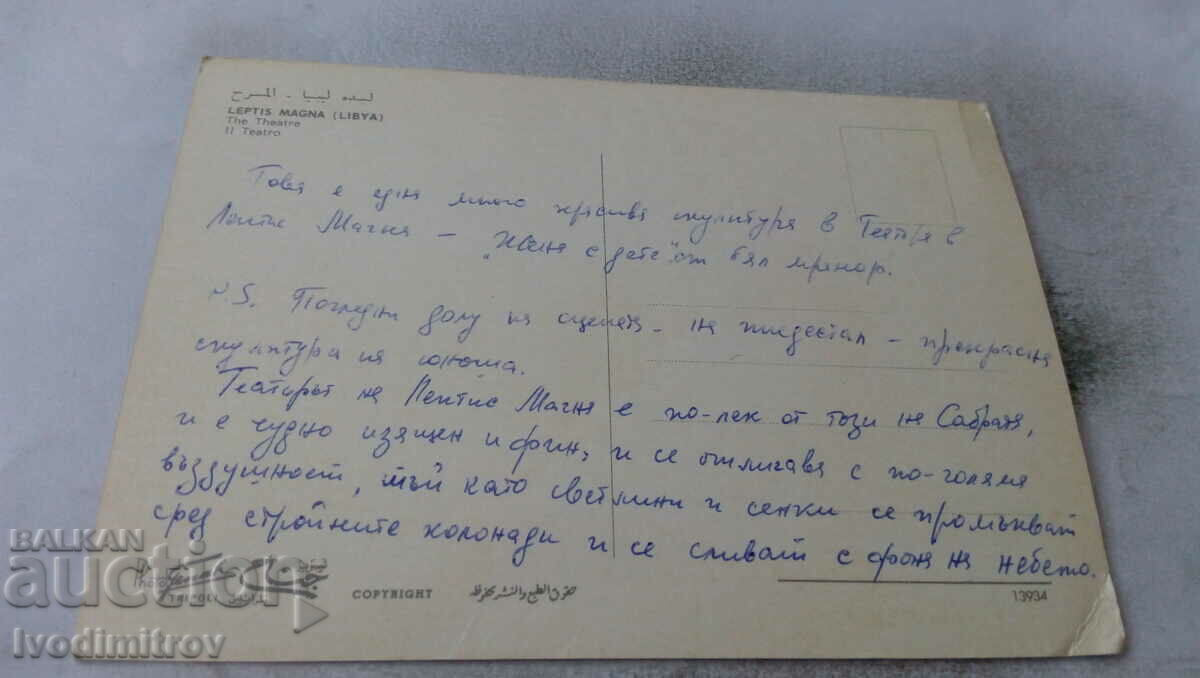 لبده ليبيا - المسرح
LEPTIS MAGNA (LIBYA)
The Theatre
Il Teatro
Това е една много красива скулптура в Театъра в
Лептис Магна – "Жена с дете" от бял мрамор.
P.S. Погледни долу на сцената – на пиедестал – прекрасна
скулптура на юноша.
Театърът на Лептис Магна е по-лек от този на Сабрата,
и е чудно изящен и фин, и се отличава с по-голяма
въздушност, тъй като светлини и сенки се промъкват
сред стройните колонади и се сливат с фона на небето.
Photo
TRIPOLI طرابلس
COPYRIGHT
حقوق الطبع والنشر محفوظة
13934
BALKAN
auction
Ivodimitrov